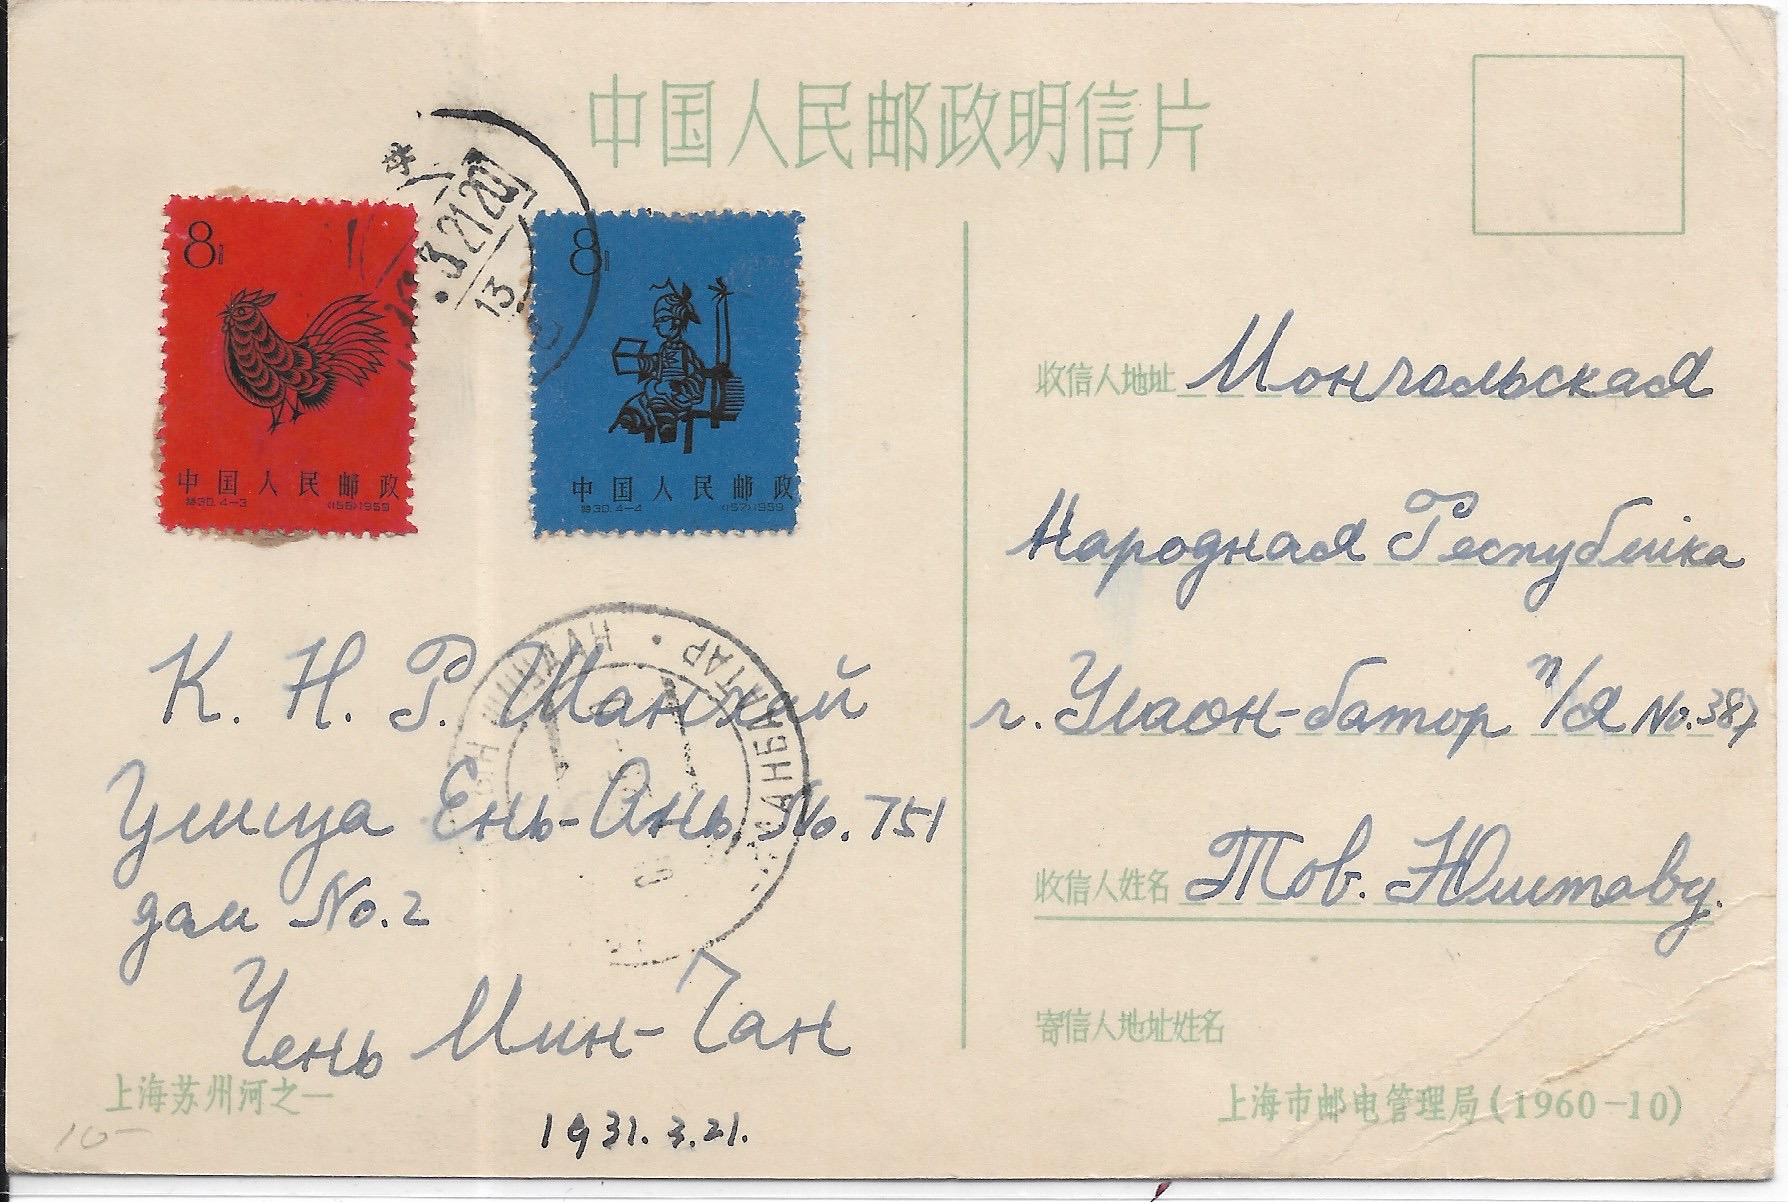 中国人民邮政明信片
3.21.20
13
8
中国人民邮政
特30.4-3 (156)1959
8
中国人民邮政
特30.4-4 (157)1959
收信人地址 Мончольская
Народная Республика
г. Улаон-батор п/я No.387
收信人姓名 Тов. Юштавд.
寄信人地址姓名
上海市邮电管理局(1960-10)
УЛААНБААТАР
К. Н. Р. Шанхай
Улица Ень-Ань No. 751
дом No.2
Чень Мин-Чан
上海苏州河之一
1931.3.21.
10-